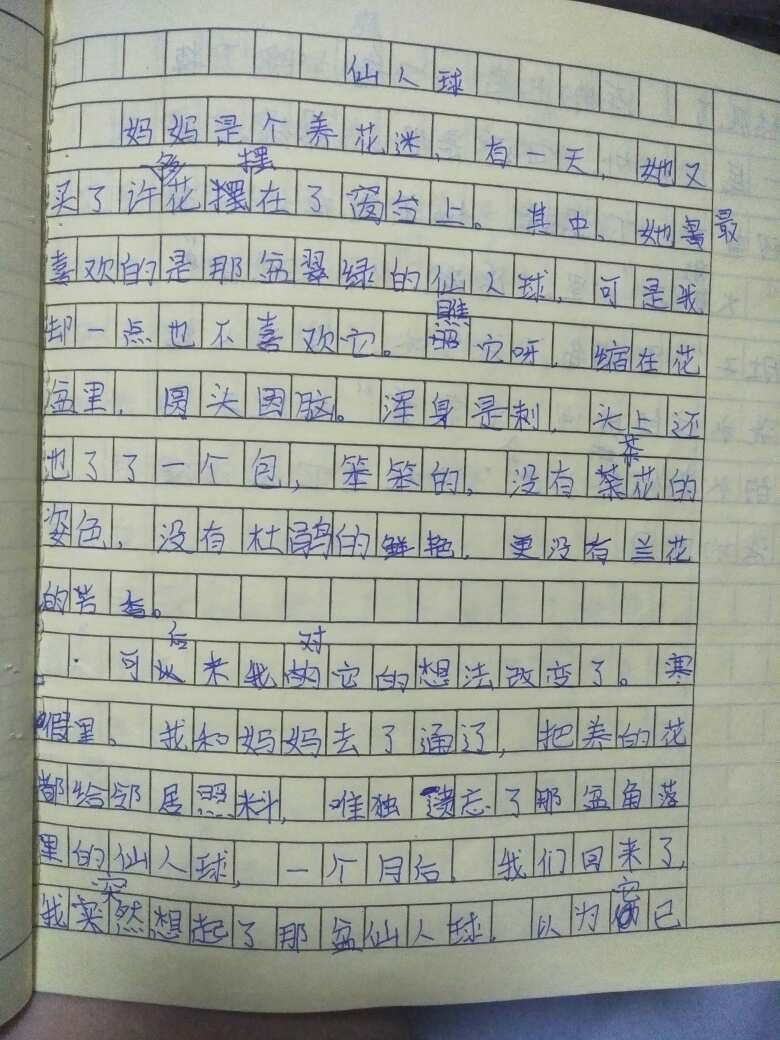 仙人球
妈妈是个养花迷,有一天,她又
买了许多花摆在了窗台上。其中,她最
喜欢的是那盆翠绿的仙人球,可是我
却一点也不喜欢它。瞧它呀,缩在花
盆里,圆头圆脑。浑身是刺,头上还
了一个包,笨笨的,没有茶花的
姿色,没有杜鹃的鲜艳,更没有兰花
的
可后来我对它的想法改变了。寒
假里。我和妈妈去了通辽,把养的花
都给邻居照料,唯独遗忘了那盆角落
里的仙人球,一个月后,我们回来了,
我突然想起了那盆仙人球,以为它已